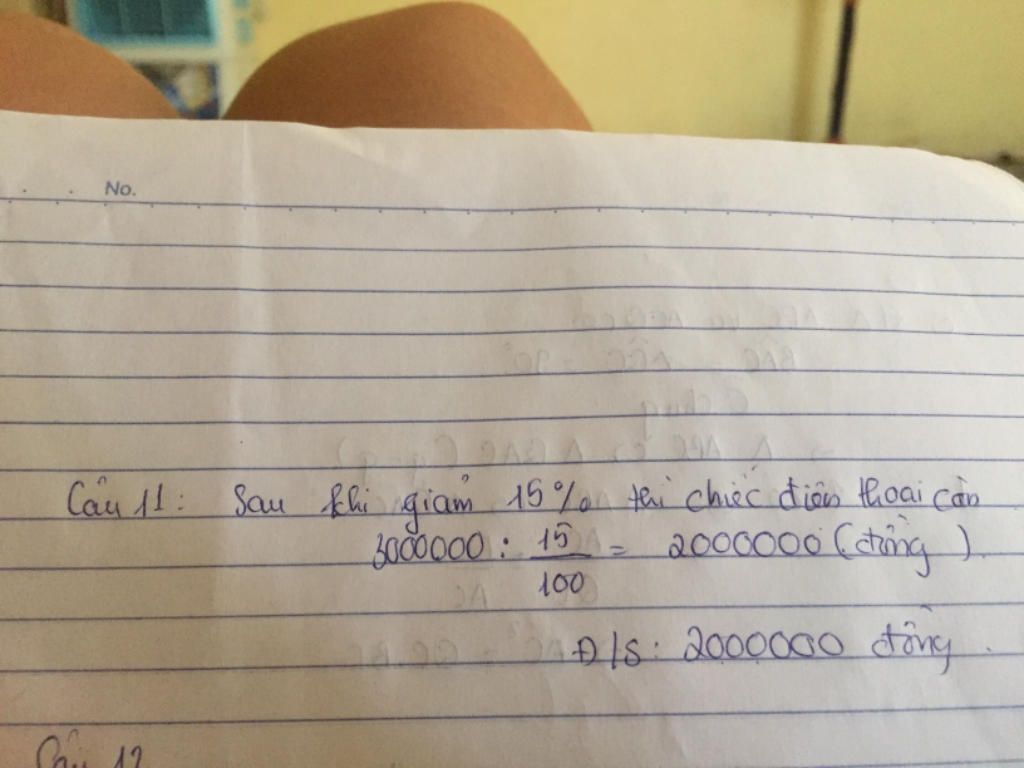 No.
Câu 11: Sau khi giảm 15% thì chiếc điện thoại còn
3000000 : 15/100 = 2000000 (đồng).
Đ/S: 2000000 đồng.
Câu 12